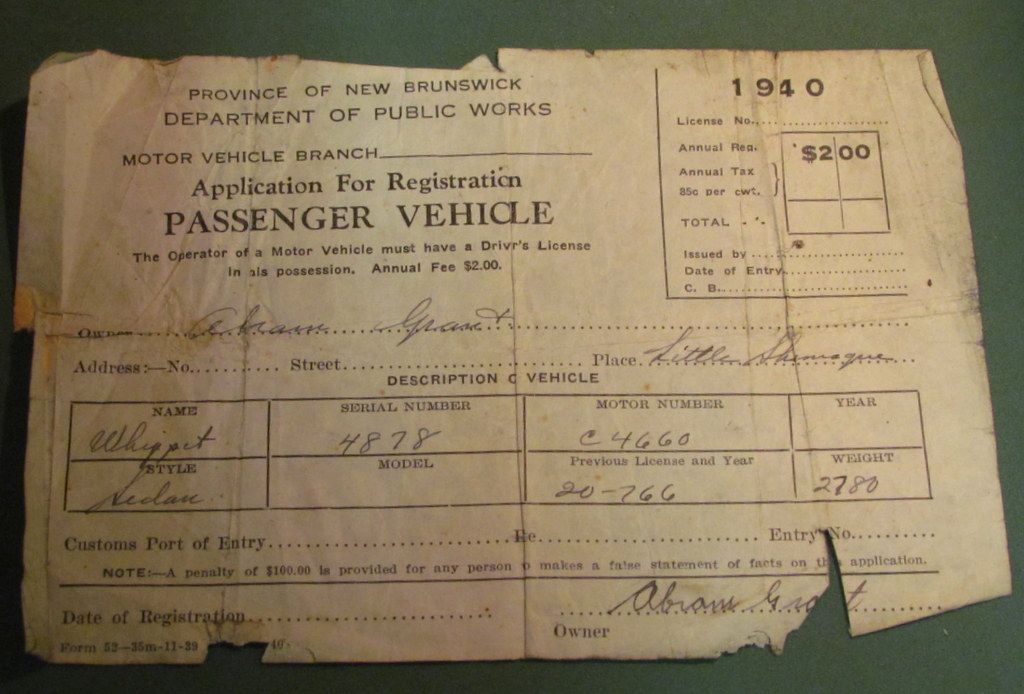 PROVINCE OF NEW BRUNSWICK
DEPARTMENT OF PUBLIC WORKS
MOTOR VEHICLE BRANCH
Application For Registration
PASSENGER VEHICLE
The Operator of a Motor Vehicle must have a Drivr's License
in his possession. Annual Fee $2.00.
1940
License No.
Annual Reg. $2 00
Annual Tax
85c per cwt.
TOTAL
Issued by
Date of Entry
C. B.
Owner Abram Grant
Address:—No. Street Place Little Shemogue
DESCRIPTION O VEHICLE
NAME SERIAL NUMBER MOTOR NUMBER YEAR
Whippet 4878 C4660
STYLE MODEL Previous License and Year WEIGHT
Sedan 20-766 2780
Customs Port of Entry Re Entry No.
NOTE:—A penalty of $100.00 is provided for any person o makes a false statement of facts on th application.
Date of Registration Abram Grant
Owner
Form 52—35m-11-39 40